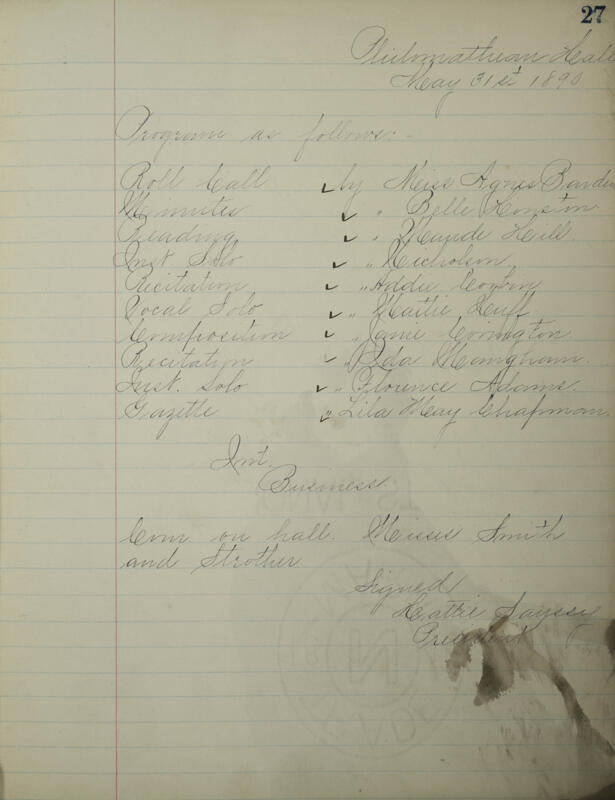 27
Philomathean Hall
May 31st 1890
Programe as follows:-
Roll Call by Miss Agnes Barden
Minutes " Belle Houston
Reading " Maude Hill.
Inst Solo " Nicholson
Recitation " Addie
Vocal Solo " Mattie Huff
Composition " Janie Covington.
Recitation " Mangham.
Inst. Solo " Florence Adams.
Gazette " Lila May Chapman.
Int.
Business
Com on hall. Misses Smith
and Strother
Signed
Hattie
President